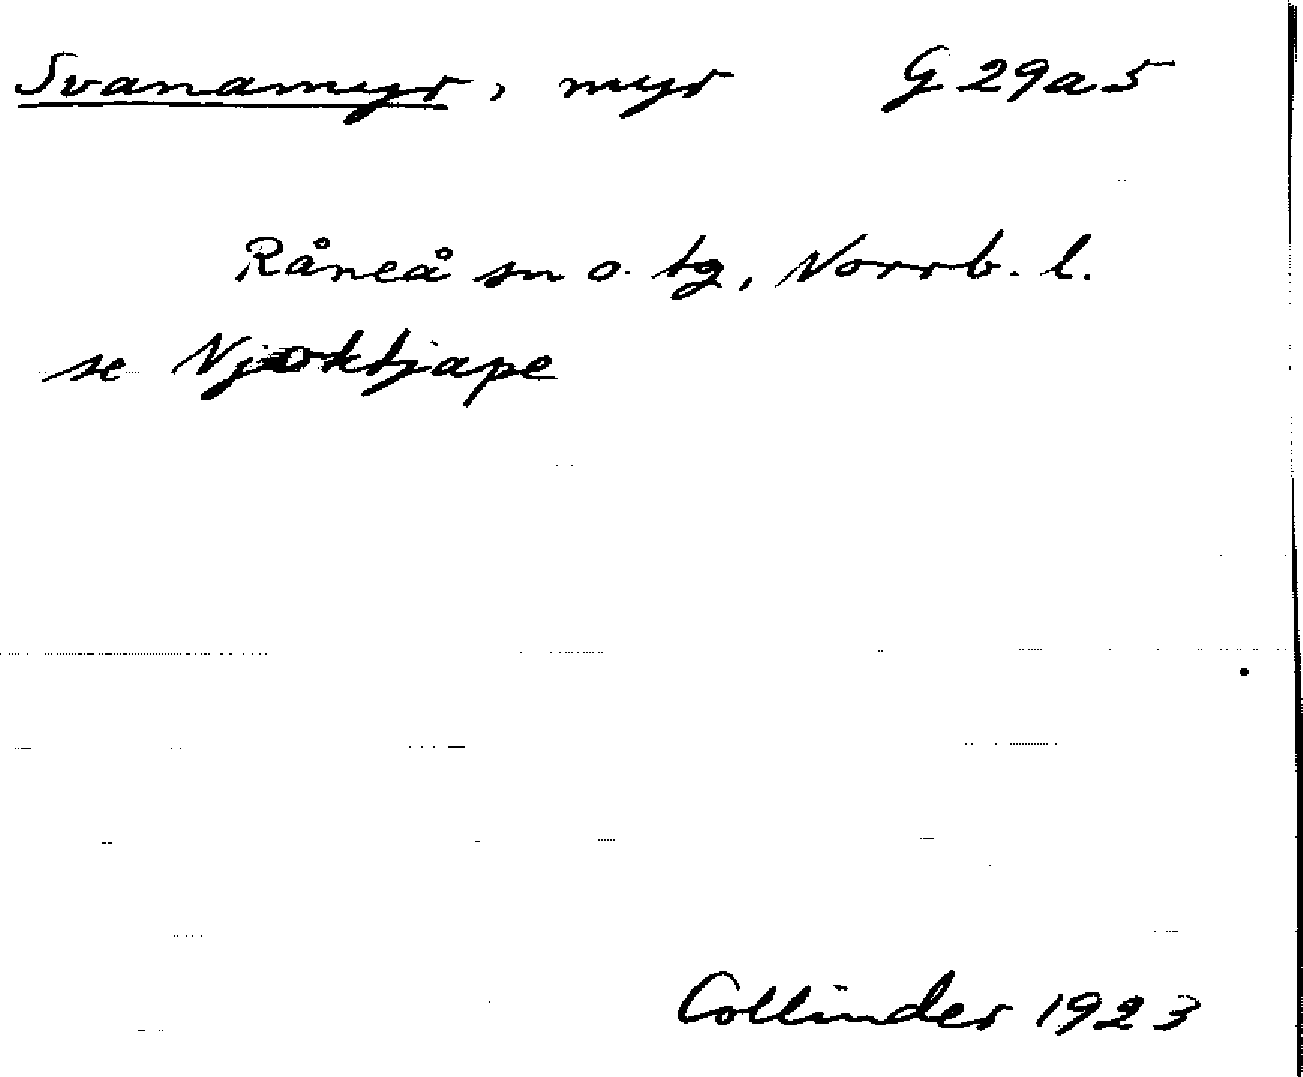 Svanamyr, myr G 29a5
Råneå sn o. tg, Norrb. l.
se Njoktjape
Collinder 1923